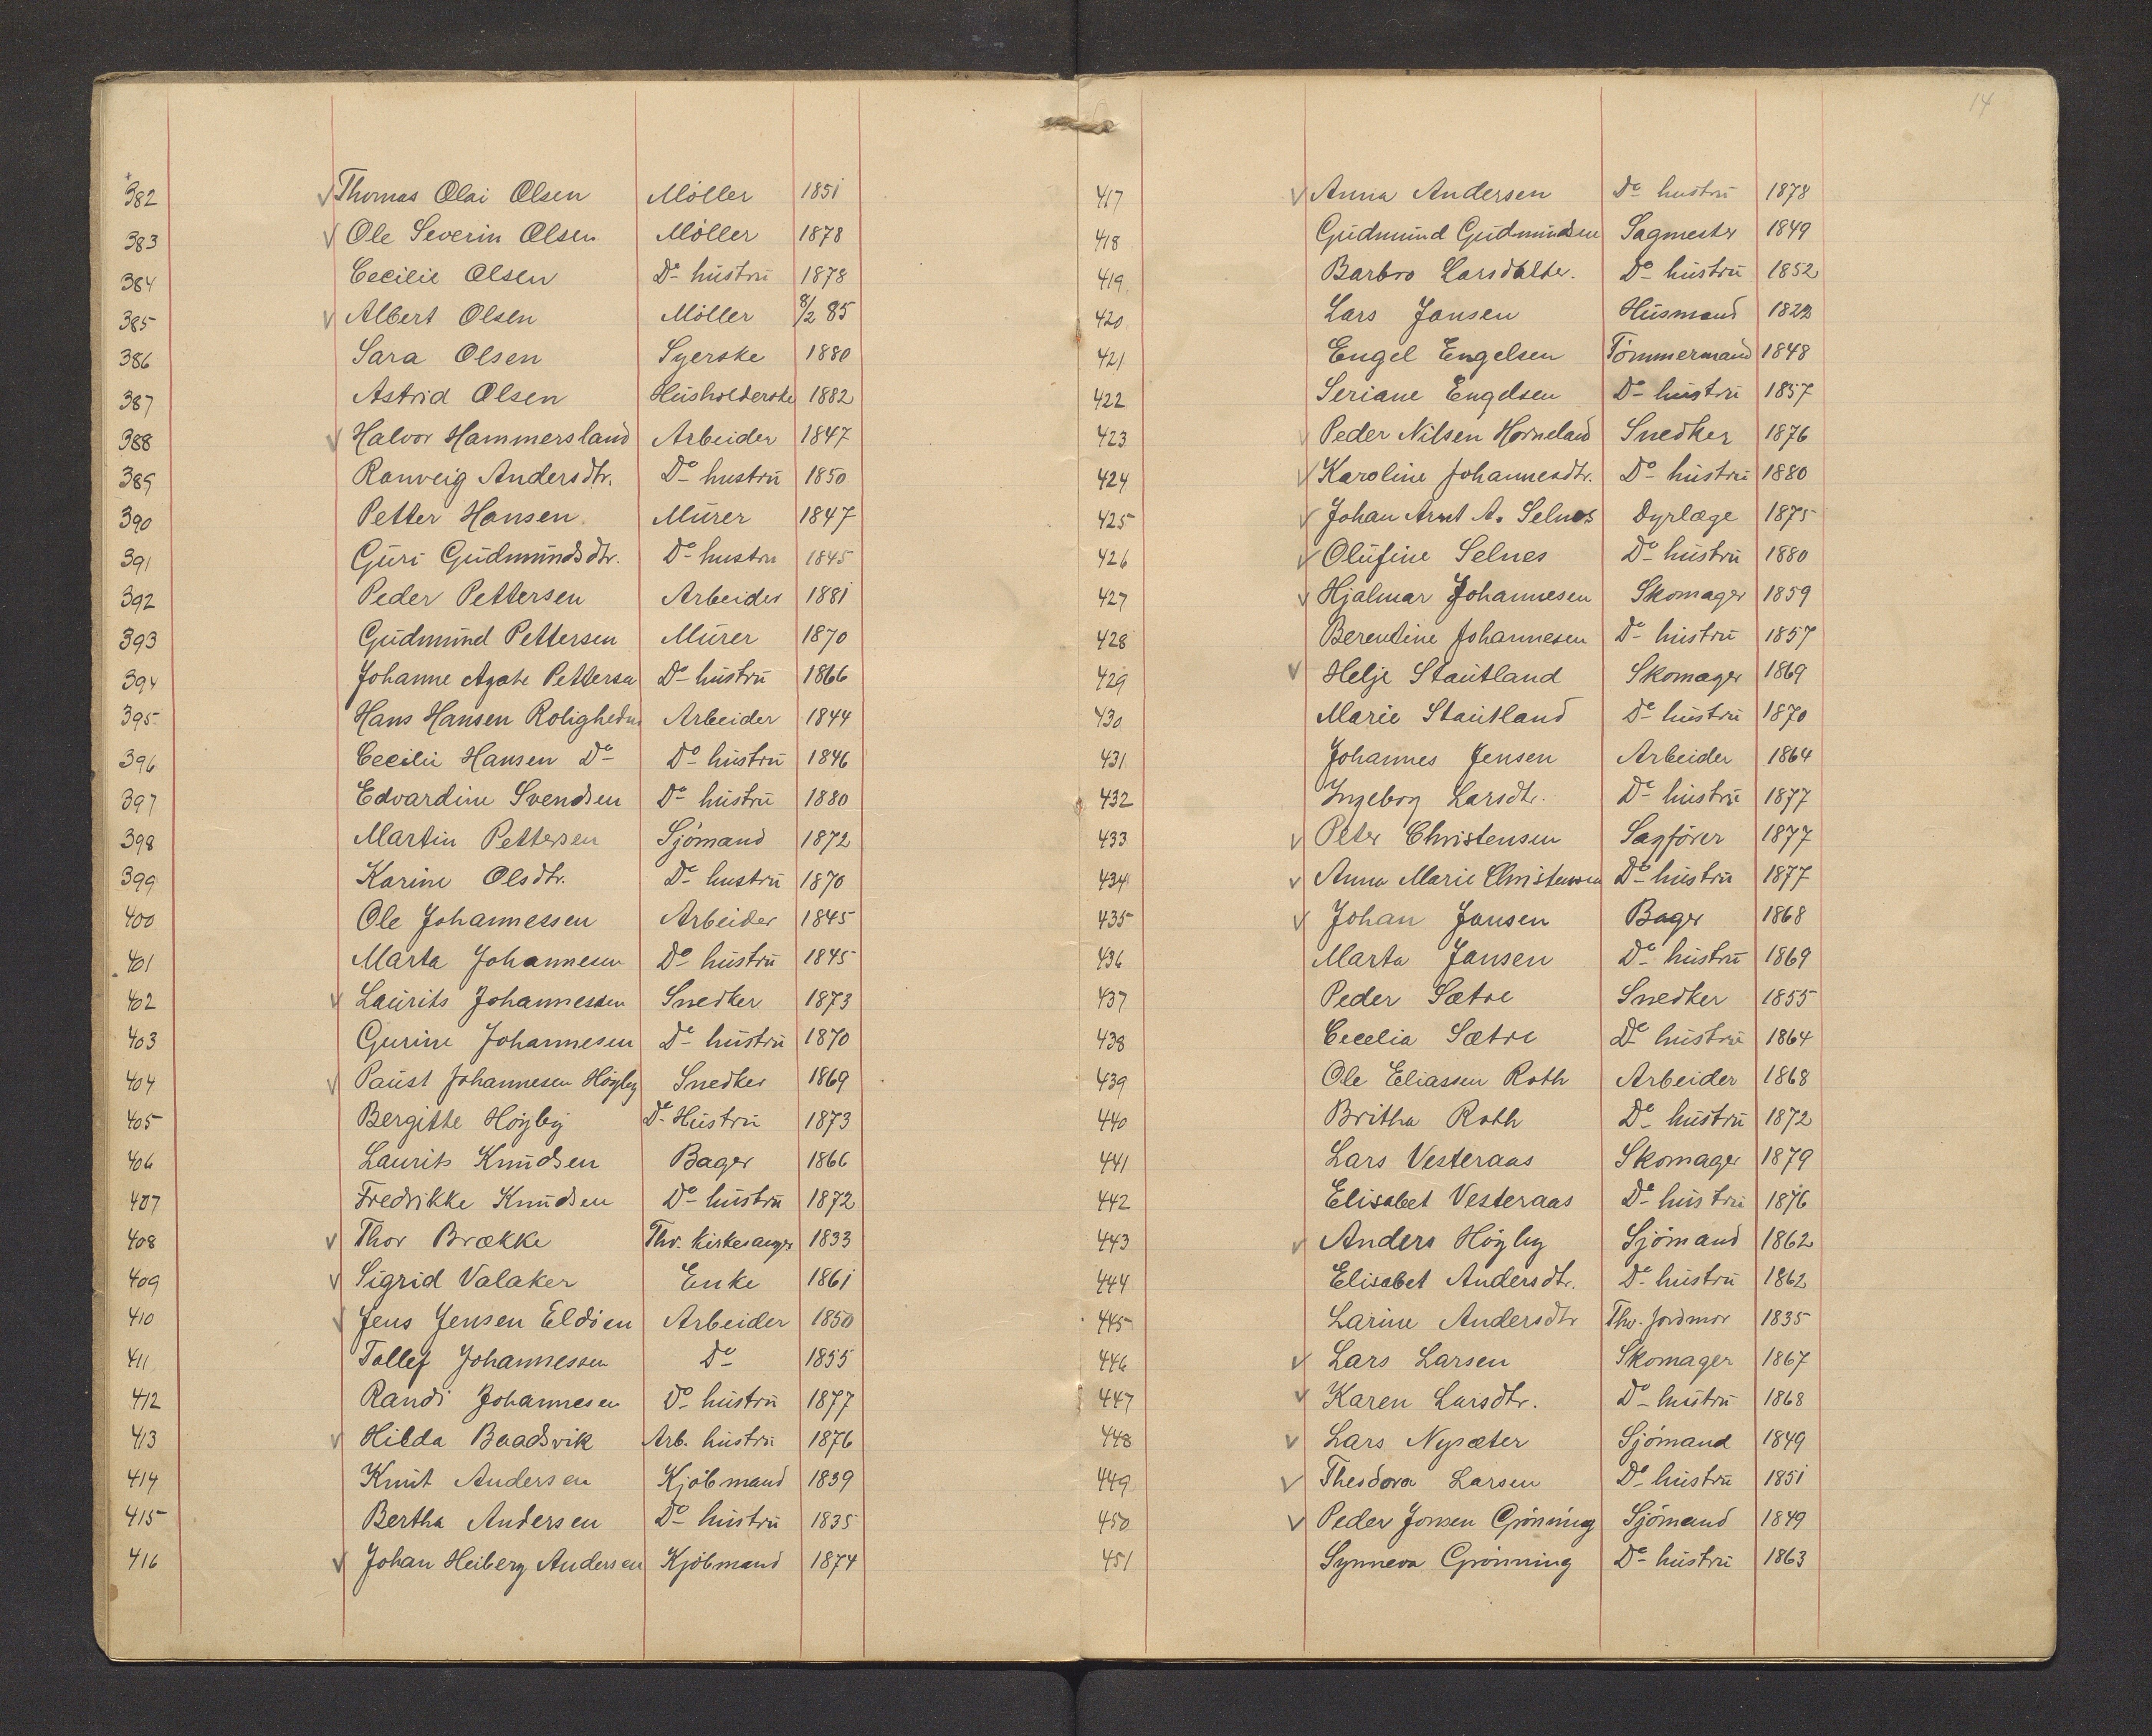 382 V Thomas Olai Olsen Möller 1851
383 V Ole Severin Olsen Möller 1878
384 Cecilie Olsen Do hustru 1878
385 V Albert Olsen Möller 8/2 85
386 Sara Olsen Syerske 1880
387 Astrid Olsen Husholderske 1882
388 V Halvor Hammersland Arbeider 1847
389 Ranveig Andersdtr. Do hustru 1850
390 Petter Hansen. Murer 1847
391 Guri Gudmundsdtr. Do hustru 1845
392 Peder Pettersen Arbeider 1881
393 Gudmund Pettersen Murer 1870
394 Johanne Agate Pettersen Do hustru 1866
395 Hans Hansen Roligheden Arbeider 1844
396 Cecilie Hansen Do Do hustru 1846
397 Edvardine Svendsen Do hustru 1880
398 Martin Pettersen Sjömand 1872
399 Karine Olsdtr. Do hustru 1870
400 Ole Johannessen Arbeider 1845
401 Marta Johannesen Do hustru 1845
402 V Laurits Johannessen Snedker 1873
403 Gurine Johannesen Do hustru 1870
404 V Paust Johannesen Höyby Snedker 1869
405 Bergitte Höyby Do Hustru 1873
406 Laurits Knudsen Bager 1866
407 Fredrikke Knudsen Do hustru 1872
408 V Thor Brække Thv. kirkesanger 1833
409 V Sigrid Valaker Enke 1861
410 V Jens Jensen Eldöen Arbeider 1850
411 Tollef Johannessen Do 1855
412 Randi Johannesen Do hustru 1877
413 V Hilda Baadsvik Arb. hustru 1876
414 Knut Andersen Kjöbmand 1839
415 Bertha Andersen Do hustru 1835
416 V Johan Heiberg Andersen Kjöbmand 1874
14
417 V Anna Andersen Do hustru 1878
418 Gudmund Gudmundsen Sagmester 1849
419 Barbro Larsdatter. Do hustru 1852
420 Lars Jansen Husmand
421 Engel Engelsen Tömmermand 1848
422 Seriane Engelsen Do hustru 1857
423 V Peder Nilsen Horneland Snedker 1876
424 V Karoline Johannesdtr. Do hustru 1880
425 V Johan Arnt A. Selnes Dyrlæge 1875
426 V Olufine Selnes Do hustru 1880
427 V Hjalmar Johannesen Skomager 1859
428 Berentine Johannesen Do hustru 1857
429 V Helje Stautland Skomager 1869
430 Marie Stautland Do hustru 1870
431 Johannes Jensen Arbeider 1864
432 Ingeborg Larsdtr. Do hustru 1877
433 V Peter Christensen Sagförer 1877
434 V Anna Marie Christensen Do hustru 1877
435 V Johan Jansen Bager 1868
436 Marta Jansen Do hustru 1869
437 Peder Sætre Snedker 1855
438 Cecelia Sætre Do hustru 1864
439 Ole Eliassen Roth Arbeider 1868
440 Britha Roth Do hustru 1872
441 Lars Vesteraas Skomager 1879
442 Elisabet Vesteraas Do hustru 1876
443 V Anders Höyby Sjömand 1862
444 Elisabet Andersdtr. Do hustru 1862
445 Larine Andersdtr Thv. Jordmor 1835
446 V Lars Larsen Skomager 1867
447 V Karen Larsdtr. Do hustru 1868
448 V Lars Nysæter Sjömand 1849
449 V Theodora Larsen Do hustru 1851
450 V Peder Jonsen Grönning Sjömand 1849
451 Synneva Grönning Do hustru 1863